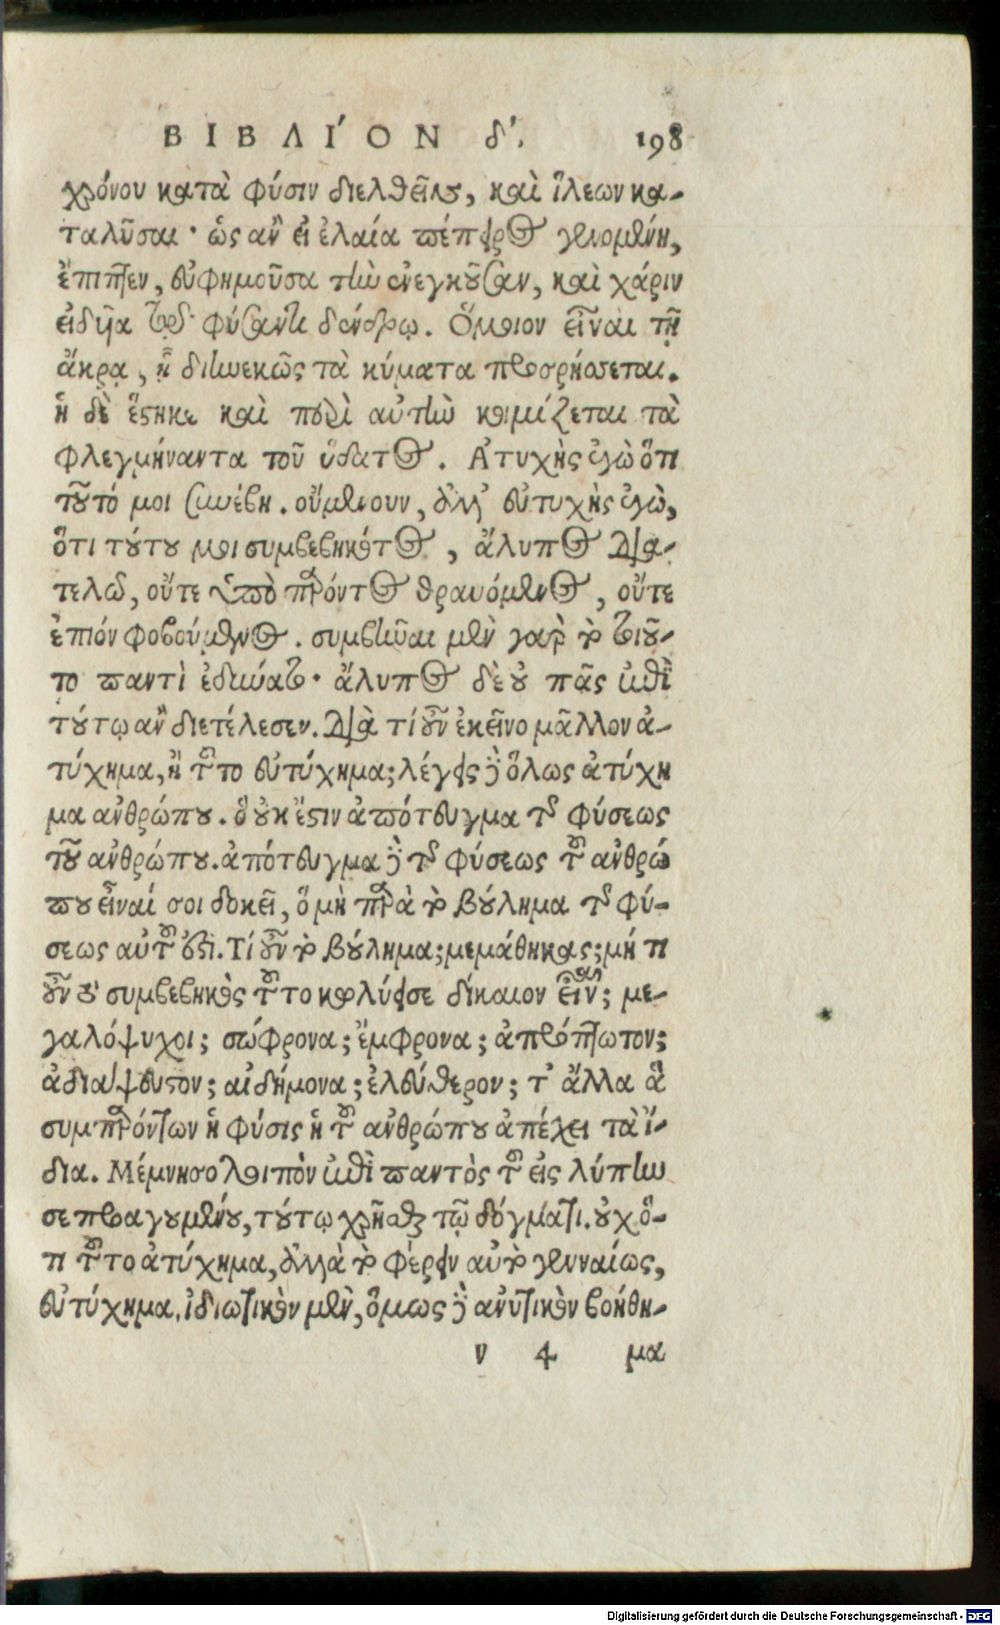 ΒΙΒΛΊΟΝ δʹ. 198
χρόνου κατὰ φύσιν διελθεῖν, καὶ ἵλεων κα-
ταλῦσαι· ὡς ἂν εἰ ἐλαία πέπειρος γενομένη,
ἔπιπτεν, εὐφημοῦσα τὴν ἐνεγκοῦσαν, καὶ χάριν
εἰδῦα τῷ φύσαντι δένδρῳ. Ὅμοιον εἶναι τῇ
ἄκρᾳ, ᾗ διηνεκῶς τὰ κύματα προσρήσεται.
ἡ δὲ ἕστηκε καὶ περὶ αὐτὴν κοιμίζεται τὰ
φλεγμήναντα τοῦ ὕδατος. Ἀτυχὴς ἐγὼ ὅτι
τοῦτό μοι συνέβη. οὔμενουν, ἀλλ' εὐτυχὴς ἐγὼ,
ὅτι τούτου μοι συμβεβηκότος, ἄλυπος δια-
τελῶ, οὔτε ὑπὸ παρόντος θραυόμενος, οὔτε
ἐπιόν φοβούμενος. συμβῆναι μὲν γὰρ τὸ τοιοῦ-
το παντὶ ἐδύνατο· ἄλυπος δὲ οὐ πᾶς ἐπὶ
τούτῳ ἂν διετέλεσεν. Διὰ τί οὖν ἐκεῖνο μᾶλλον ἀ-
τύχημα, ἢ τοῦτο εὐτύχημα; λέγεις δὲ ὅλως ἀτύχη
μα ἀνθρώπου. ὃ οὐκ ἔστιν ἀπότευγμα τῆς φύσεως
τοῦ ἀνθρώπου. ἀπότευγμα δὲ τῆς φύσεως τοῦ ἀνθρώ
που εἶναί σοι δοκεῖ, ὃ μὴ παρὰ τὸ βούλημα τῆς φύ-
σεως αὐτοῦ ἐστι. Τί οὖν τὸ βούλημα; μεμάθηκας; μή τι
οὖν τὸ συμβεβηκὸς τοῦτο κωλύει σε δίκαιον εἶναι; με-
γαλόψυχοι; σώφρονα; ἔμφρονα; ἀπρόπτωτον;
ἀδιάψευστον; αἰδήμονα; ἐλεύθερον; τ' ἄλλα ἃ
συμπαρόντων ἡ φύσις ἡ τοῦ ἀνθρώπου ἀπέχει τὰ ἴ-
δια. Μέμνησο λοιπὸν ἐπὶ παντὸς τοῦ εἰς λύπην
σε προαγουμένου, τούτῳ χρῆσθαι τῷ δόγματι. οὐχ ὅ-
τι τοῦτο ἀτύχημα, ἀλλὰ τὸ φέρειν αὐτὸ γενναίως,
εὐτύχημα. ἰδιωτικὸν μὲν, ὅμως δὲ ἀνυτικὸν βοήθη-
ν 4 μα
Digitalisierung gefördert durch die Deutsche Forschungsgemeinschaft - DFG